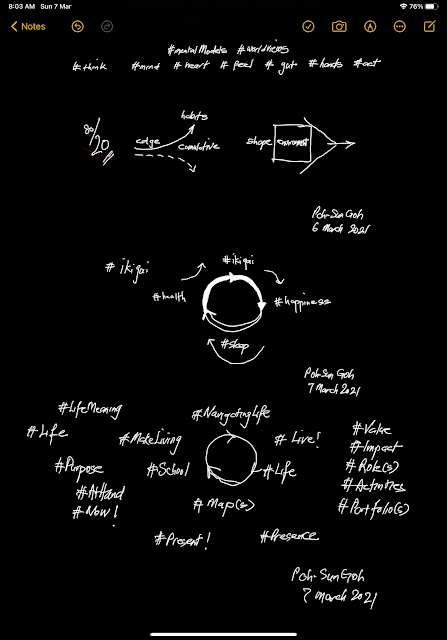 8:03 AM Sun 7 Mar
76%
Notes
#mentalModels #worldviews
#think #mind #heart #feel #gut #hands #act
80/20
edge
habits
cumulative
shape
environment
Poh-Sun Goh
6 March 2021
#ikigai
#ikigai
#health
#happiness
#sleep
Poh-Sun Goh
7 March 2021
#LifeMeaning
#NavigatingLife
#Life
#MakeLiving
#Live!
#Value
#Impact
#Purpose
#School
#Life
#Role(s)
#AtHand
#Activities
#Now!
#Map(s)
#Portfolio(s)
#Present!
#Presence
Poh-Sun Goh
7 March 2021